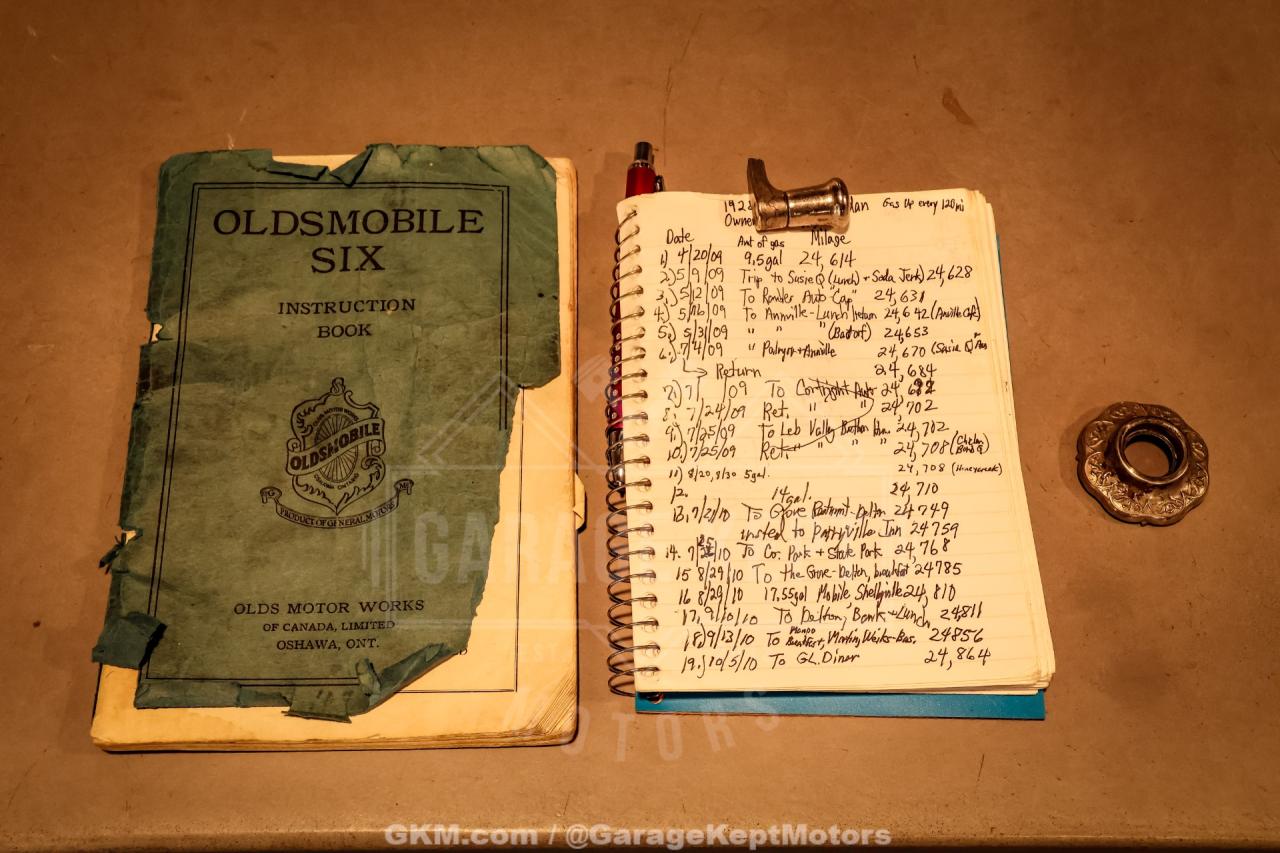 OLDSMOBILE
SIX
INSTRUCTION
BOOK
OLDS MOTOR WORKS
OLDSMOBILE
OSHAWA ONTARIO
PRODUCT OF GENERAL MOTORS
OLDS MOTOR WORKS
OF CANADA, LIMITED
OSHAWA, ONT.
192 Gas Up every 120 mi
Owne
Date Amt of gas Milage
1) 4/20/09 9.5gal 24,614
2.) 5/9/09 Trip to Susie Q (Lunch) + Soda Jerk) 24,628
3.) 5/12/09 To Auto "Cap" 24,631
4.) 5/16/09 To Annville-Lunch 24,642 (Annville Cafe)
5.) 5/31/09 " " " 24,653
6.) 7/4/09 " + Annville 24,670
↳ Return 24,684
7.) 7/ /09 To 24,692
8. 7/24/09 Ret. " " 24,702
9.) 7/25/09 To Leb Valley 24,702
10.) 7/25/09 Ret. " " " 24,708
11) 8/20, 8/30 5gal. 24,708
12. 14gal. 24,710
13. 7/21/10 To Grove 24749
to Inn 24759
14. 7/25/10 To Co. Park + State Park 24,768
15 8/29/10 To the Grove-Delton, breakfast 24785
16 8/29/10 17.55gal Mobile Shelbyville 24,810
17. 9/10/10 To Delton, Bank + Lunch 24811
18.) 9/13/10 To Breakfast, 24856
19.) 10/5/10 To GL. Diner 24,864
GARAGE
MOTORS
GKM.com / @GarageKeptMotors